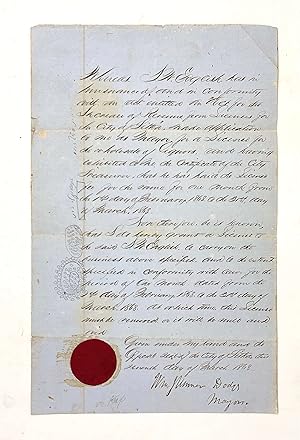 Whereas J. W. English has in
pursuance of, and in conformity
with an act entitled An Act for the
Increase of Revenue from Licenses for
the City of Sitka, made application
to me as Mayor, for a License for
the wholesale of Liquors, and having
exhibited to me the Certificate of the City
Treasurer, that he has paid the License
fee for the same for one month from
the day of February 1868 to the 2nd day
of March, 1868.
Now therefore, be it known
that I do hereby grant a License to
the said English, to carry on the
business above specified, and to the extent
specified in conformity with law for the
period of One month dated from the
day of February 1868, to the 2nd day of
March 1868. At which time this License
must be renewed or it will be null and
void
Given under my hand and the
Official Seal of the City of Sitka, this
Second day of March 1868.
Wm Sumner Dodge
Mayor.